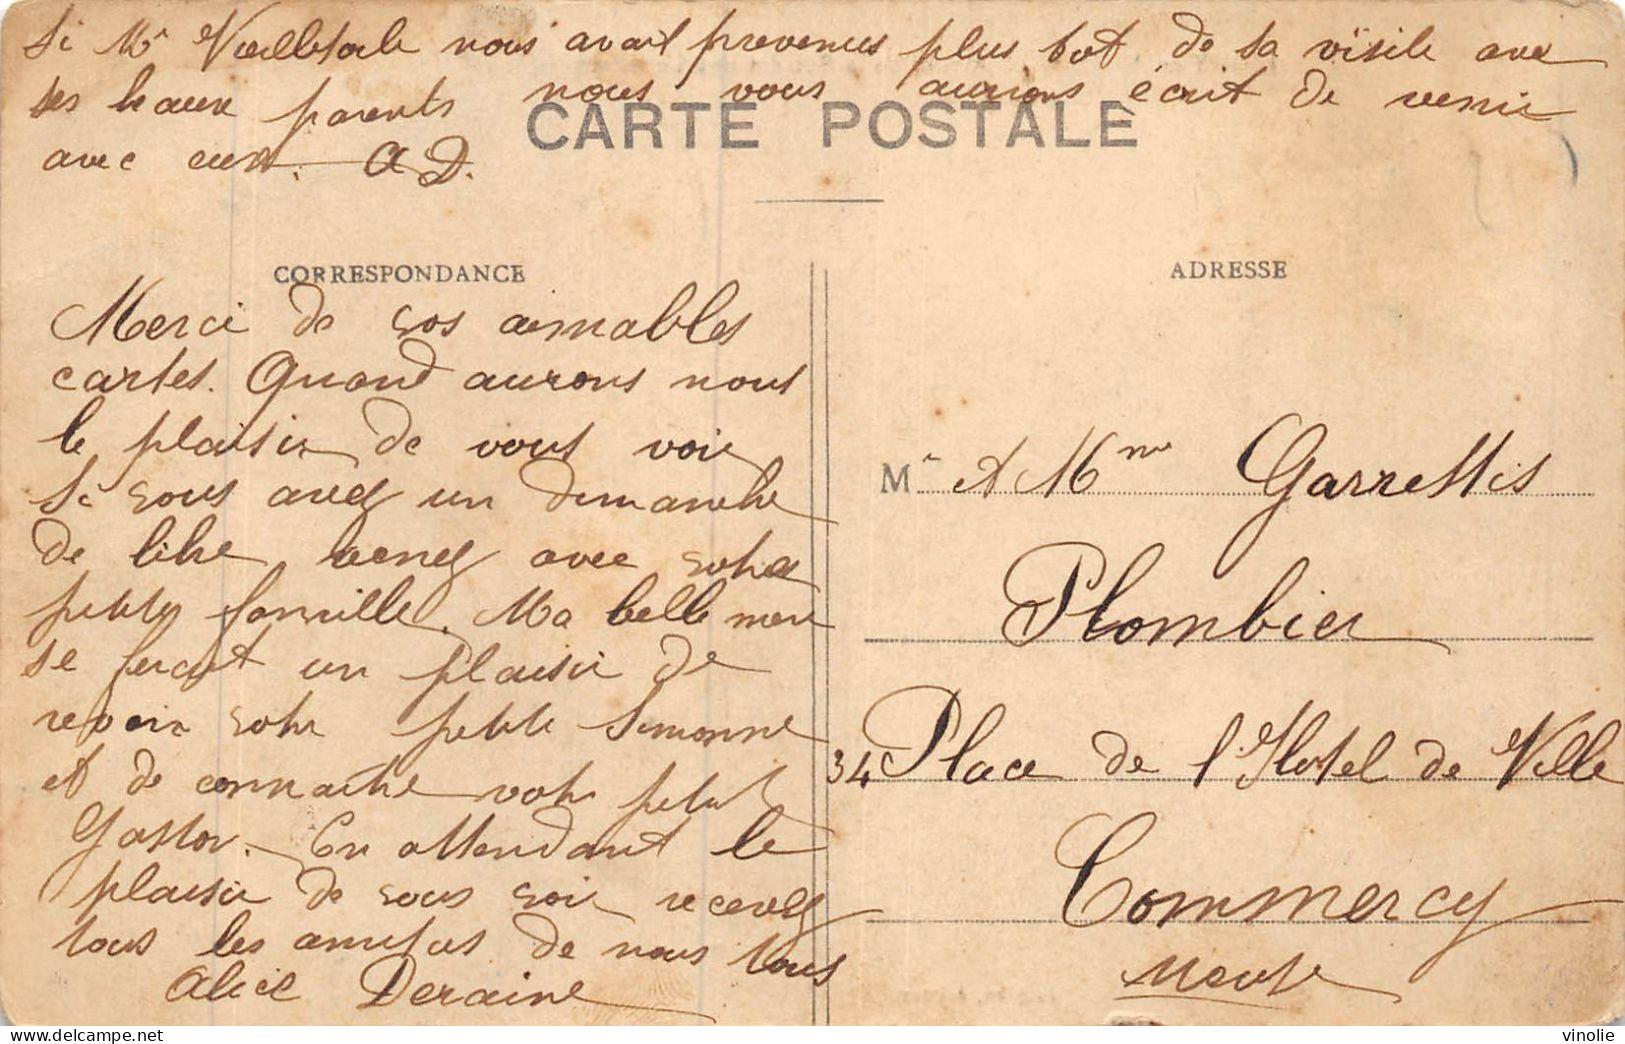 Si Mr nous avait prevenus plus tot de sa visite avec
ses beaux parents nous vous aurions écrit de venir
avec eux. A D.
CARTE POSTALE
CORRESPONDANCE
Merci de vos aimables
cartes. Quand aurons nous
le plaisir de vous voir
Si vous avez un dimanche
de libre venez avec votre
petite famille. Ma belle mere
se ferait un plaisir de
revoir votre petite Simonne
et de connaitre votre petit
Gaston. En attendant le
plaisir de vous voir recevez
tous les amities de nous tous
Alice Deraine
ADRESSE
Mr et Mme
Plombier
34 Place de l'Hotel de Ville
Commercy
Meuse
vinolie